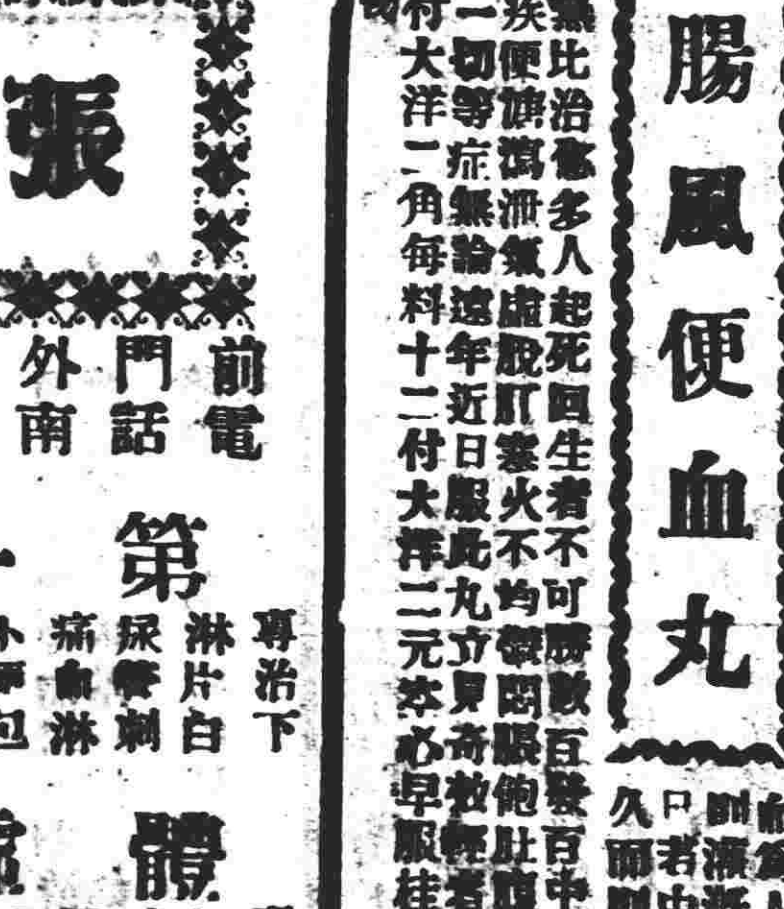 腸風便血丸
比治多人起死回生者不可勝數百發百中
疾便瀉泄氣虛脫肛塞火不均悶脹飽肚腹
一切等症無論遠年近日服此丸立見奇效輕者
付大洋二角每料十二付大洋二元本必早服桂
久而
口若中
張
前電
門話
外南
第
專治下
淋片白
尿管刺
痛血淋
體